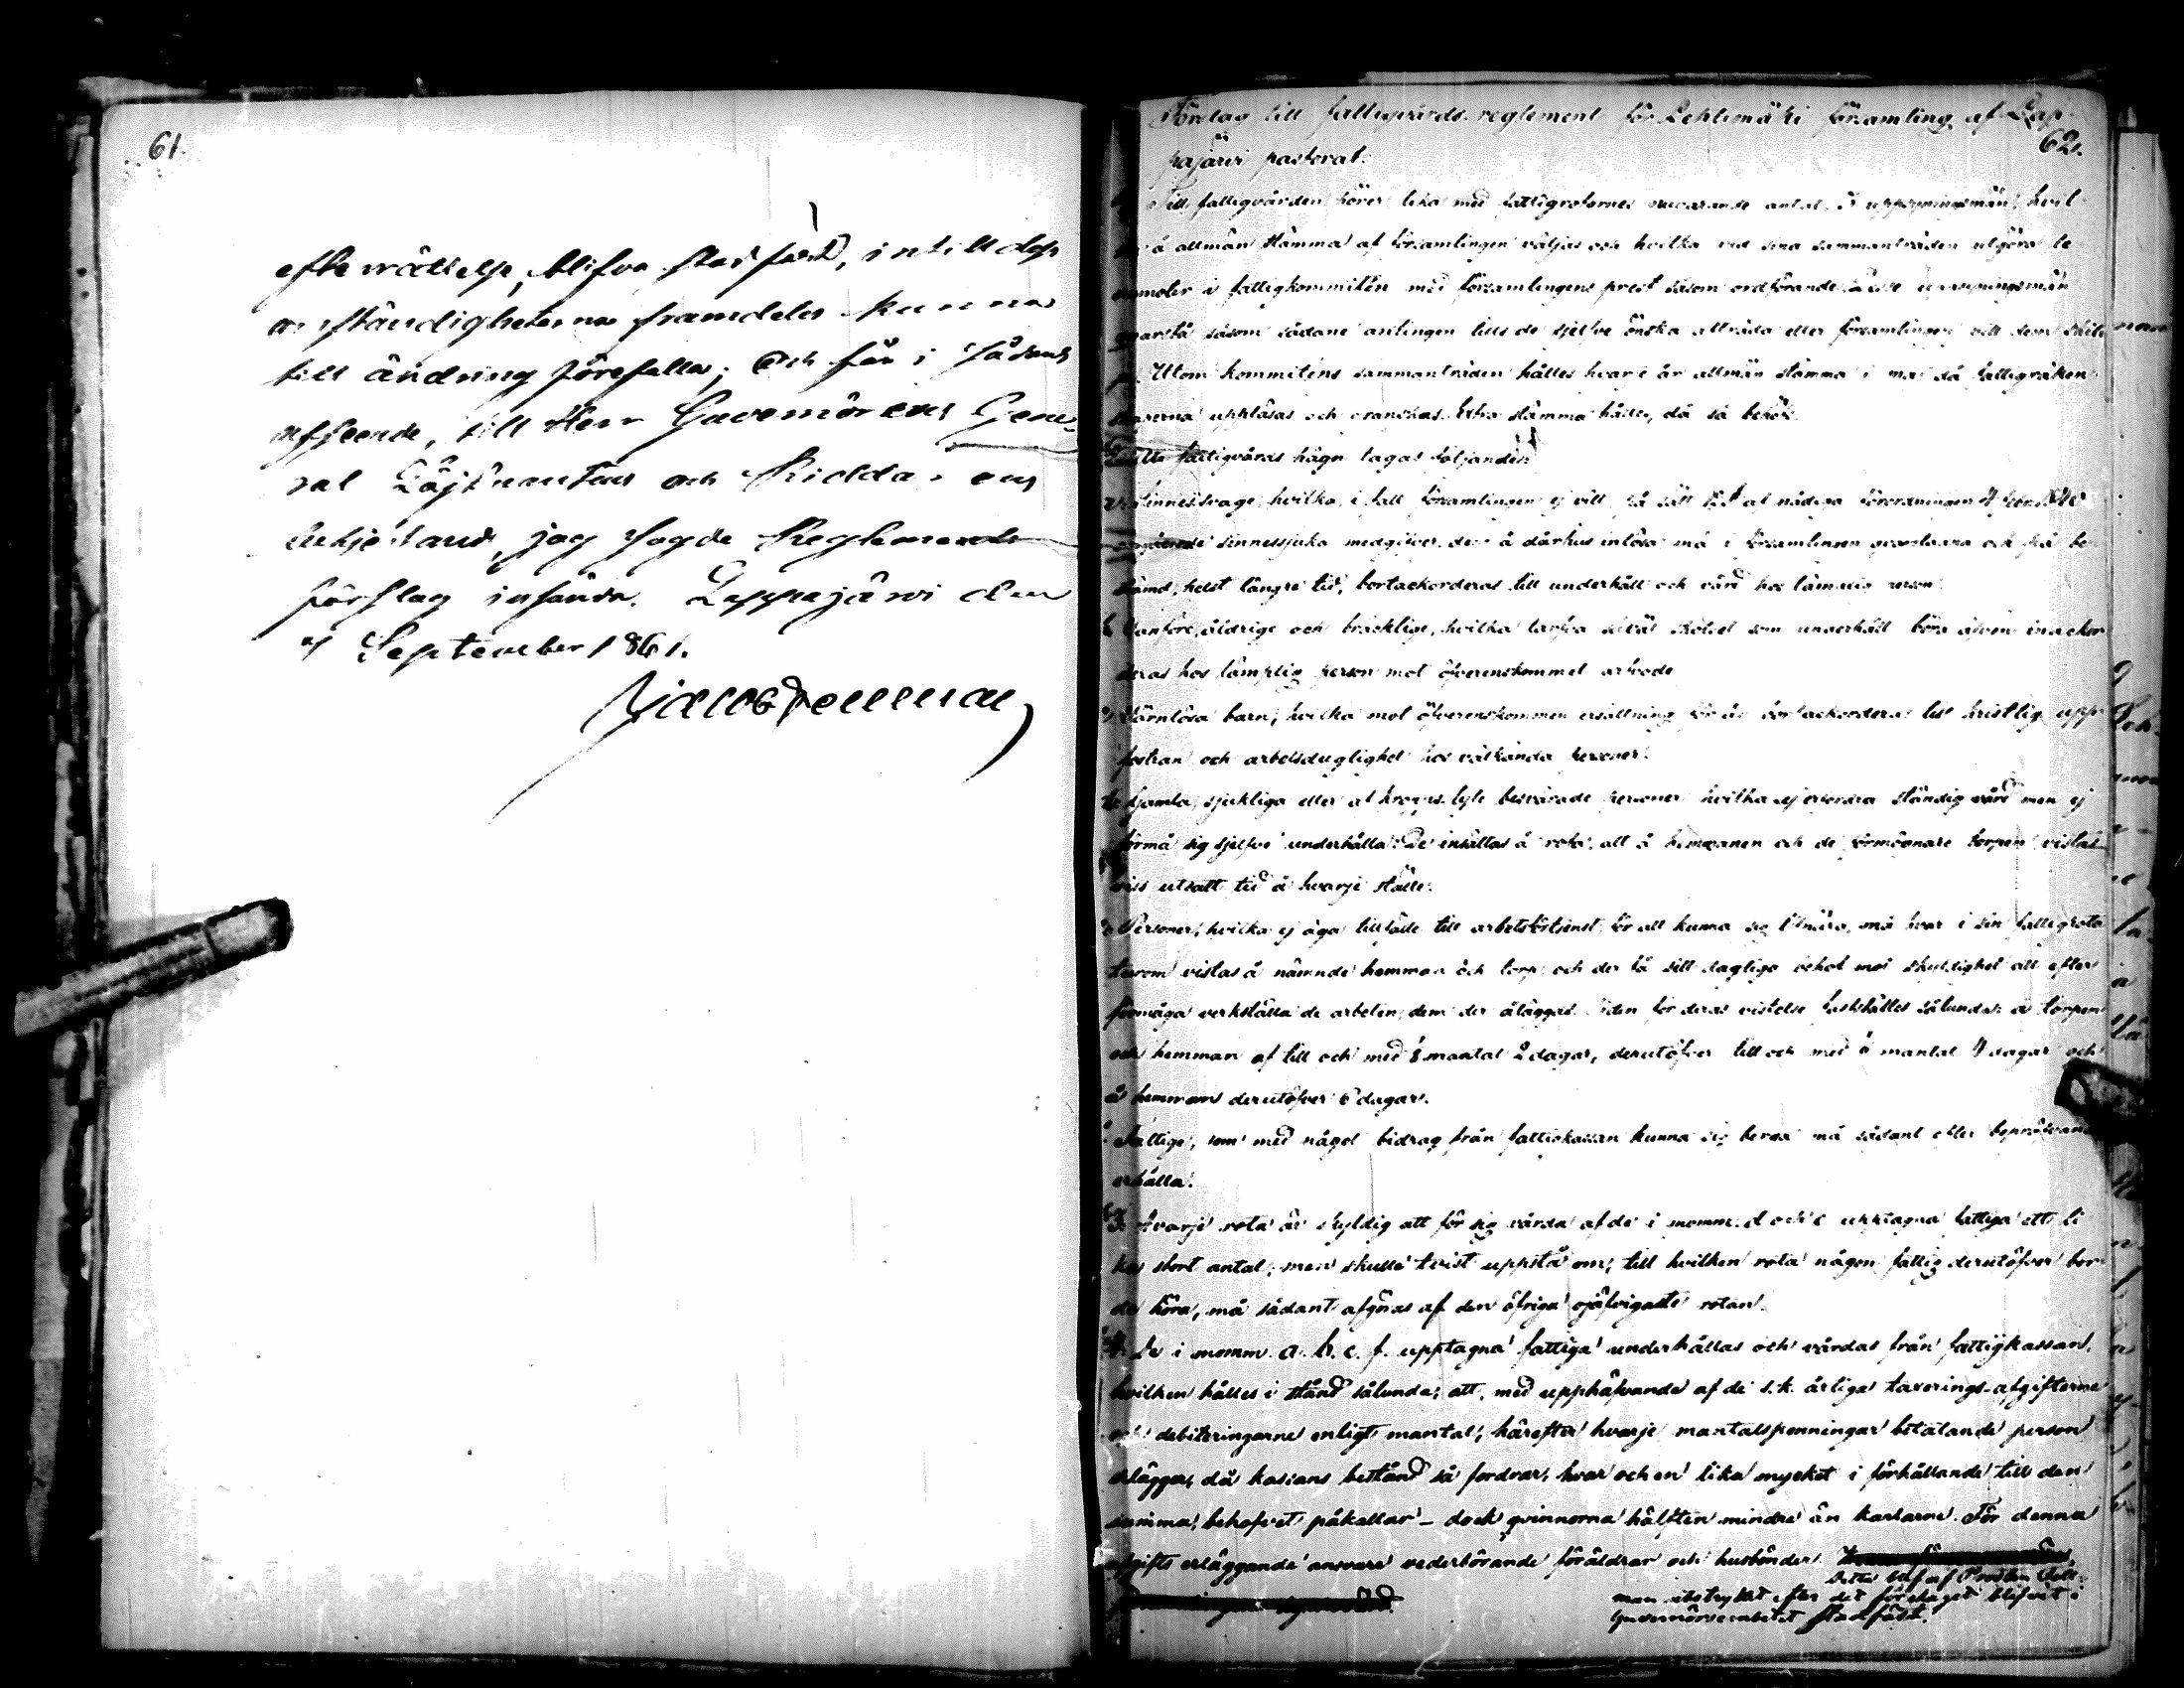 61.
efterrättelse, blifva stadfäst, intill dess
omständigheterna framdeles kunna
till ändring förefalla; och får i sådant
afseende, till Herr Guvernörens Gene-
ral Löjtnantens och Riddarens
jag sagde Reglements
förslag insända. Lappajärvi den
September 1861.
Jacob Fellman
Förslag till fattigvårds-reglement för Lehtimäki församling af Lap-
62.
pajärvi pastorat.
Till fattigvården hörer lika med fattigrotornes nuvarande antal, uppsyningsmän, hvil-
å allmän stämma af församlingen väljas och hvilka vid sina sammanträden utgöra le-
damöter i fattigkommitén med församlingens prest såsom ordförande. Desse uppsyningsmän
qvarstå såsom sådane antingen tills de sjelfve önska afträda eller församlingen vill dem skilja
Utom kommiténs sammanträden hålles hvarje år allmän stämma i maj då fattigräken-
skaperna uppläsas och granskas. Extra stämma hålles, då så behöfs.
2. Under fattigvårds hägn tagas följande:
a. Sinnessvage, hvilka, i fall församlingen ej vill, på sätt nådiga förordningen
angående sinnessjuka medgifver, dem å dårhus inlösa må i församlingen qvarstanna och på be-
stämd, helst längre tid, bortackorderas till underhåll och vård hos lämplig person.
b. Vanföre, åldrige och bräcklige, hvilka tarfva såväl skötsel som underhåll böra äfven inackor-
deras hos lämplig person mot öfverenskommet arfvode
c. Värnlösa barn, hvilka mot öfverenskommen ersättning för år bortackorderas till kristlig upp-
fostran och arbetsduglighet hos välkända personer.
d. Gamla, sjukliga eller af kropps-lyte besvärade personer hvilka ej erfordra ständig vård men ej
förmå sig sjelfve underhålla. De insättas å rota, att å hemmanen och de förmögnare torpen vistas
viss utsatt tid å hvarje ställe.
e. Personer, hvilka ej äga tillfälle till arbetsförtjenst, för att kunna sig lifnära, må hvar i sin fattigrota
turom vistas å nämnde hemman och torp och der få sitt dagliga behof mot skyldighet att efter
förmåga verkställa de arbeten, dem der åläggas. Tiden för deras vistelse fastställes sålunda: å torpen
och hemman af till och med ⅛ mantal 2 dagar, derutöfver till och med mantal 4 dagar och
å hemman derutöfver 6 dagar.
f. Fattige, som med något bidrag från fattigkassan kunna sig berga må sådant efter bepröfvande
erhålla.
§ 3. Hvarje rota är skyldig att för sig vårda af de i momm. d och e upptagna fattiga ett li-
ka stort antal; men skulle tvist uppstå om, till hvilken rota någon fattig derutöfver bor-
de höra, må sådant afgöras af den öfriga ojäfvigaste rotan.
§ 4. De i momm. a. b. c. f. upptagna fattiga underhållas och vårdas från fattigkassan,
hvilken hålles i stånd sålunda, att, med upphäfvande af de s.k. årliga taxerings-afgifterne
och debiteringarne enligt mantal, härefter hvarje mantalspenningar betalande person
erlägger, då kassans bestånd så fordrar, hvar och en lika mycket i förhållande till den
summa, behofvet påkallar – dock qvinnorna hälften mindre än karlarne. För denna
afgifts erläggande ansvare vederbörande föräldrar och husbönder.
Detta blef af Prosten Fell-
man utstruket efter det förslaget blifvit i
Guvernörsembetet stadfäst.